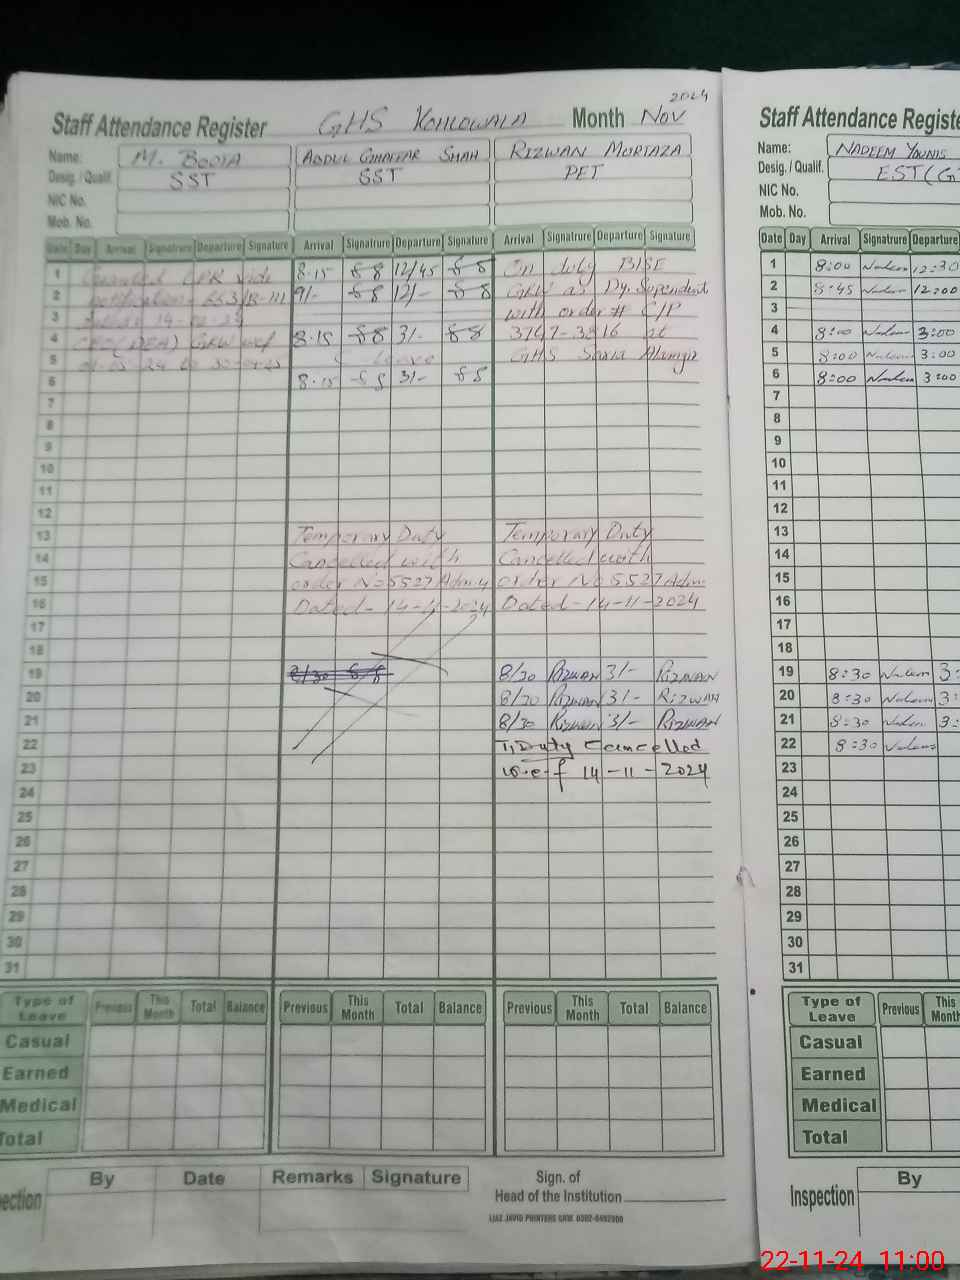 2024
Staff Attendance Register GHS KOHLOWALA Month Nov
Name: M. BOOTA ABDUL GHAFFAR SHAH RIZWAN MORTAZA
Desig. / Qualif. SST SST PET
NIC No.
Mob. No.
Date Day Arrival Signatrure Departure Signature Arrival Signatrure Departure Signature Arrival Signatrure Departure Signature
1 8.15 12/45 On duty BISE
2 9/- 12/- GRW as Dy. Supendent
3 with order # C/P
4 8.15 3/- 3767-3816 at
5 Leave GHS
6 8.15 3/-
7
8
9
10
11
12
13 Temporary Duty Temporary Duty
14 Cancelled with Cancelled with
15 order No 5527 Adm order No 5527 Adm
16 Dated- 14-11-2024 Dated-14-11-2024
17
18
19 8/30 8/30 RIZWAN 3/- RIZWAN
20 8/30 RIZWAN 3/- RIZWAN
21 8/30 RIZWAN 3/- RIZWAN
22 T, Duty Cancelled
23 w.e.f 14-11-2024
24
25
26
27
28
29
30
31
Type of Leave Previous This Month Total Balance Previous This Month Total Balance Previous This Month Total Balance
Casual
Earned
Medical
Total
By Date Remarks Signature Sign. of
ection Head of the Institution
IJAZ JAVID PRINTERS GRW.
Staff Attendance Registe
Name: NADEEM YOUNIS
Desig. / Qualif. EST (G
NIC No.
Mob. No.
Date Day Arrival Signatrure Departure
1 8:00 Nadeem 12:30
2 8:45 Nadeem 12:00
3
4 8:00 Nadeem 3:00
5 8:00 Nadeem 3:00
6 8:00 Nadeem 3:00
7
8
9
10
11
12
13
14
15
16
17
18
19 8:30 Nadeem 3:
20 8:30 Nadeem 3:
21 8:30 Nadeem 3:
22 8:30 Nadeem
23
24
25
26
27
28
29
30
31
Type of Leave Previous This Month
Casual
Earned
Medical
Total
Inspection By
22-11-24 11:00